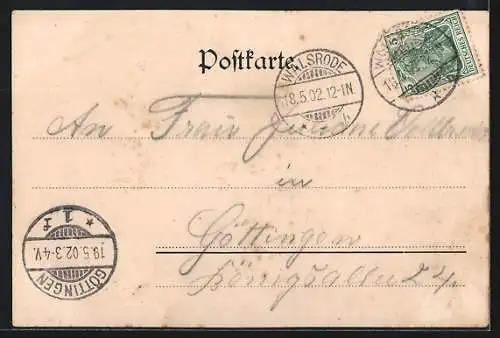 Postkarte
WALSRODE
18.5.02.12-1N.
DEUTSCHES REICH
An Frau
in
Göttingen
Königsallee 24.
* 1 f
19.5.02.3-4V.
GÖTTINGEN